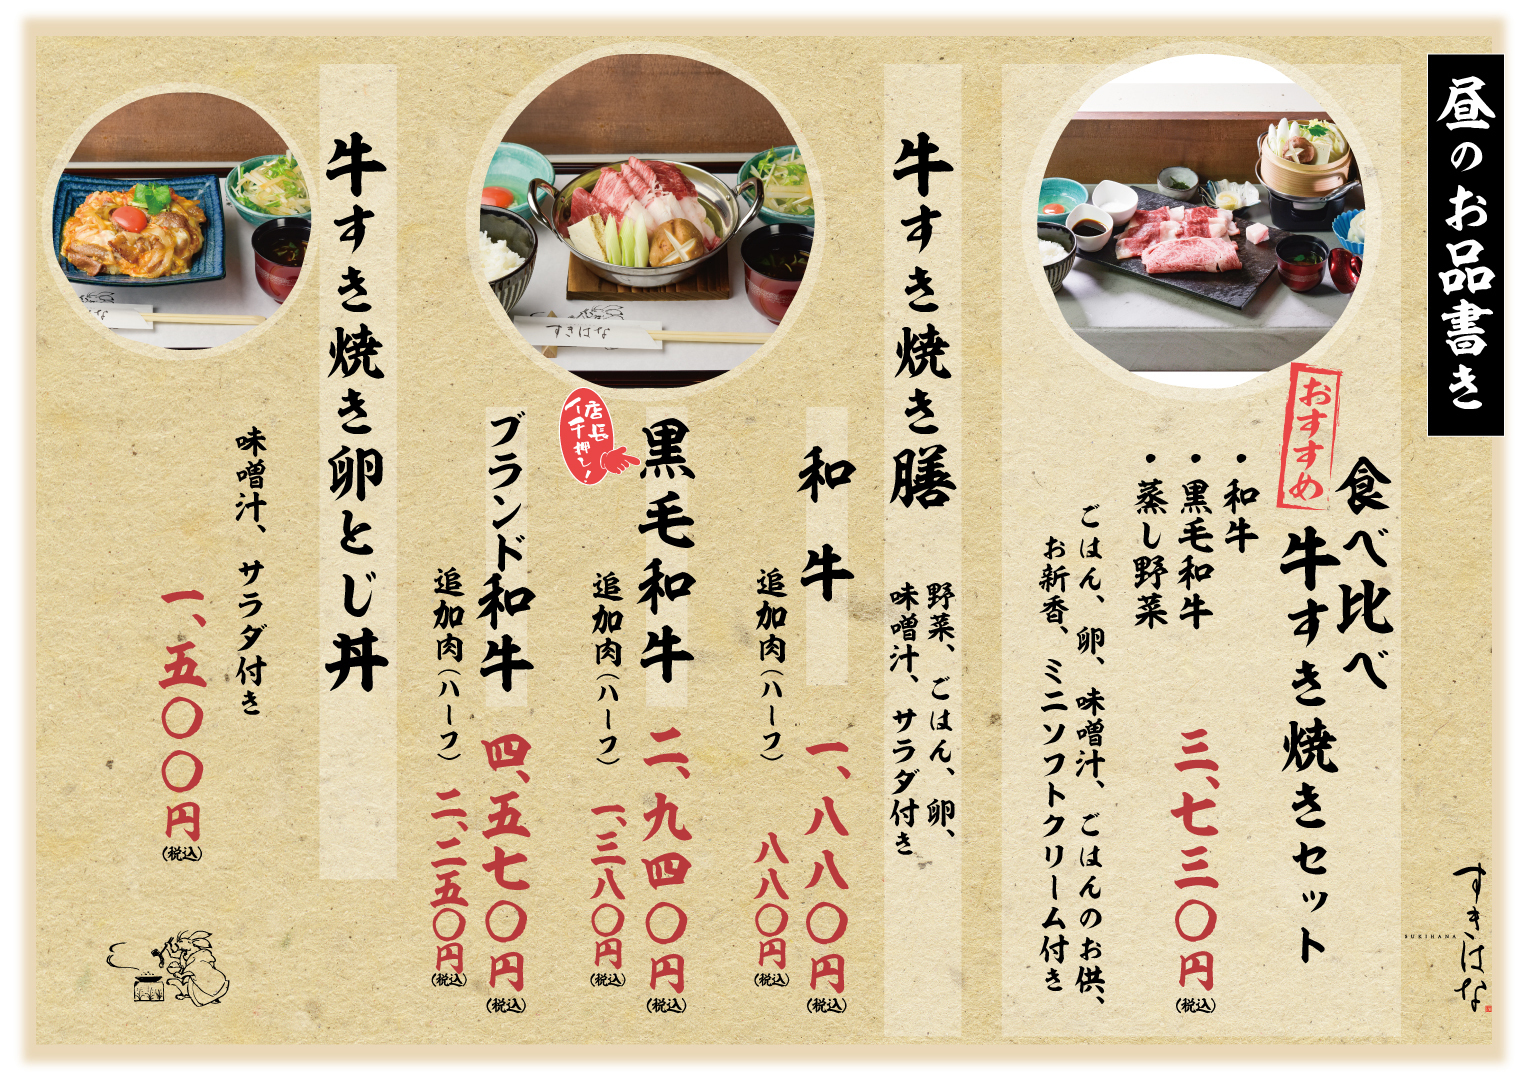 昼のお品書き
食べ比べ
牛すき焼きセット
おすすめ
・和牛
・黒毛和牛
・蒸し野菜
三、七三〇円
(税込)
ごはん、卵、味噌汁、ごはんのお供、
お新香、ミニソフトクリーム付き
牛すき焼き膳
野菜、ごはん、卵、
味噌汁、サラダ付き
和牛
一、八八〇円
(税込)
追加肉(ハーフ)
八八〇円
(税込)
黒毛和牛
二、九四〇円
(税込)
店長
イチ押し!
追加肉(ハーフ)
一、三八〇円
(税込)
ブランド和牛
四、五七〇円
(税込)
追加肉(ハーフ)
二、二五〇円
(税込)
すきはな
牛すき焼き卵とじ丼
味噌汁、サラダ付き
一、五〇〇円
(税込)
すきはな
SUKIHANA